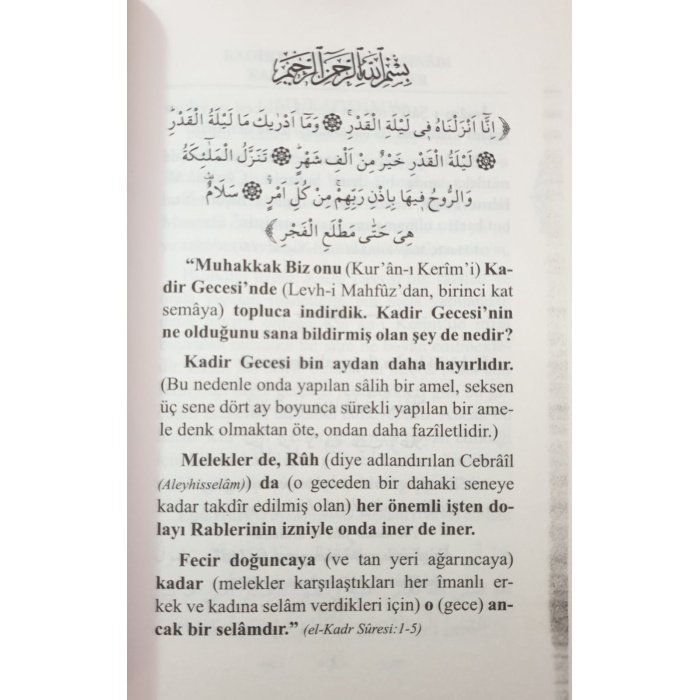 بِسْمِ اللّٰهِ الرَّحْمٰنِ الرَّحِيمِ
﴿ اِنَّٓا اَنْزَلْنَاهُ ف۪ي لَيْلَةِ الْقَدْرِۚ ۞ وَمَٓا اَدْرٰيكَ مَا لَيْلَةُ الْقَدْرِۜ
۞ لَيْلَةُ الْقَدْرِ خَيْرٌ مِنْ اَلْفِ شَهْرٍۜ ۞ تَنَزَّلُ الْمَلٰٓئِكَةُ
وَالرُّوحُ ف۪يهَا بِاِذْنِ رَبِّهِمْۚ مِنْ كُلِّ اَمْرٍۙ ۞ سَلَامٌ۠
هِيَ حَتّٰى مَطْلَعِ الْفَجْرِ ﴾
“Muhakkak Biz onu (Kur’ân-ı Kerîm’i) Ka-
dir Gecesi’nde (Levh-i Mahfûz’dan, birinci kat
semâya) topluca indirdik. Kadir Gecesi’nin
ne olduğunu sana bildirmiş olan şey de nedir?
Kadir Gecesi bin aydan daha hayırlıdır.
(Bu nedenle onda yapılan sâlih bir amel, seksen
üç sene dört ay boyunca sürekli yapılan bir ame-
le denk olmaktan öte, ondan daha fazîletlidir.)
Melekler de, Rûh (diye adlandırılan Cebrâîl
(Aleyhisselâm)) da (o geceden bir dahaki seneye
kadar takdîr edilmiş olan) her önemli işten do-
layı Rablerinin izniyle onda iner de iner.
Fecir doğuncaya (ve tan yeri ağarıncaya)
kadar (melekler karşılaştıkları her îmanlı er-
kek ve kadına selâm verdikleri için) o (gece) an-
cak bir selâmdır.” (el-Kadr Sûresi:1-5)